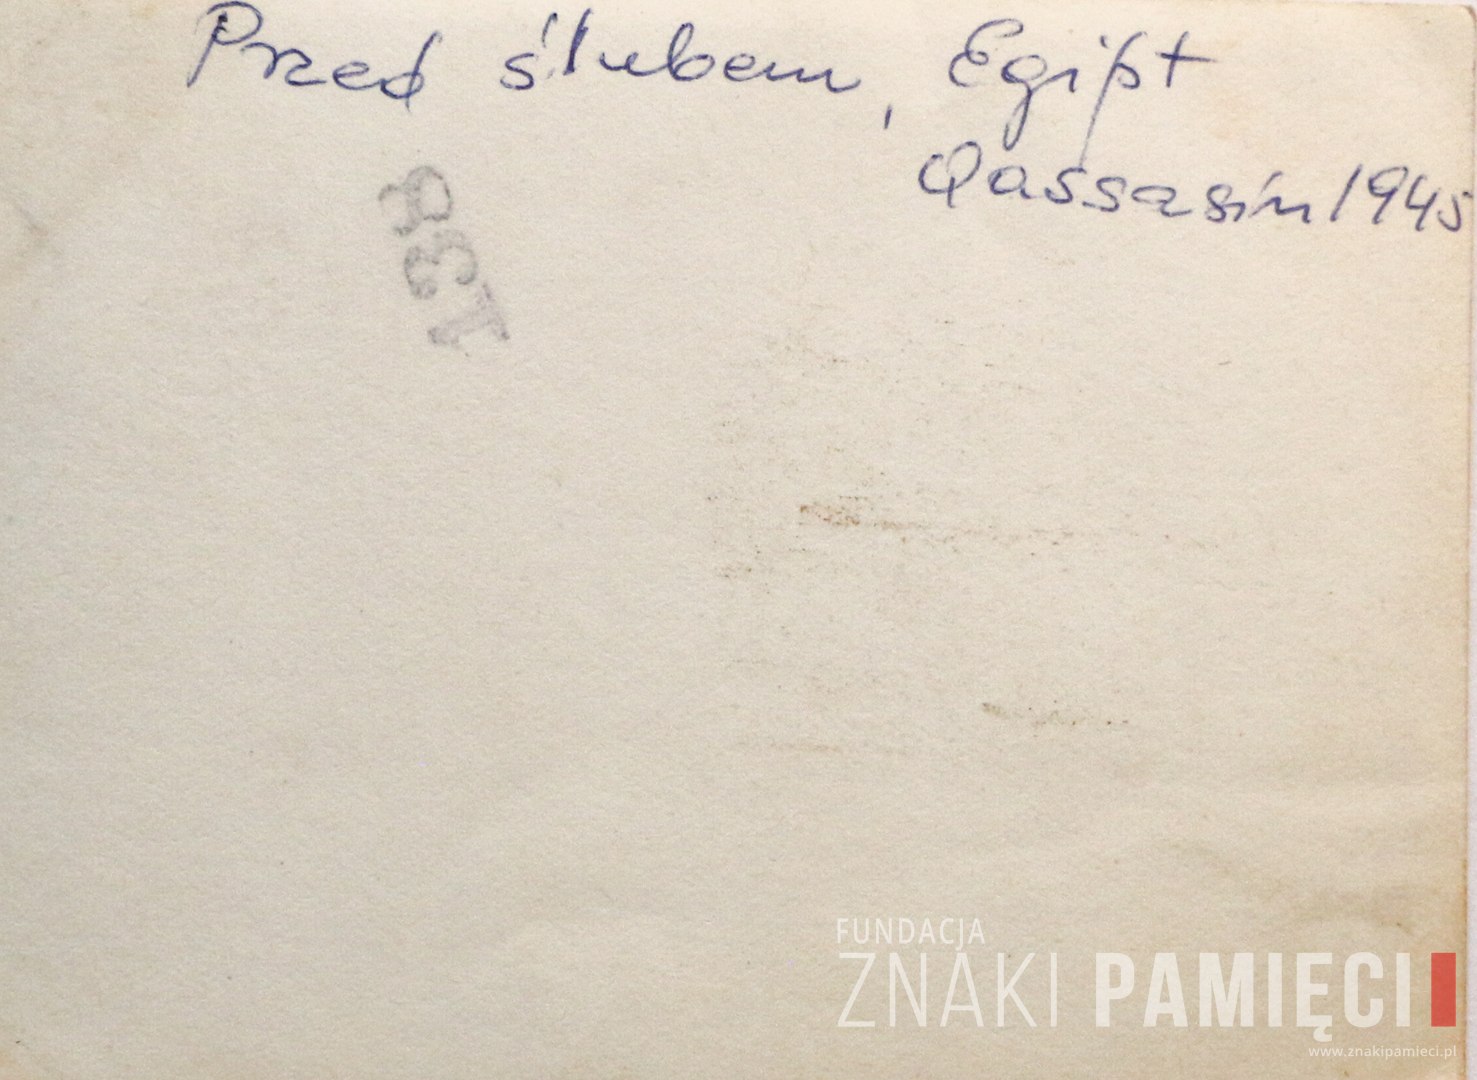 Przed ślubem, Egipt
Qassasin 1945
138
FUNDACJA
ZNAKI PAMIĘCI
www.znakipamieci.pl